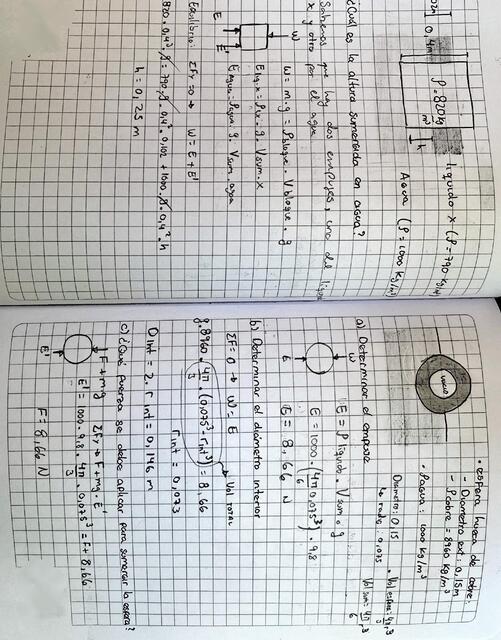 0,4m
ρ = 820 kg/m³
líquido x (ρ = 790 kg/m³)
h
Agua (ρ = 1000 kg/m³)
¿Cuál es la altura sumergida en agua?
Sabemos que hay dos empujes, uno del
x y otro por el agua
E
W
E'
W = m.g = ρbloque . Vbloque . g
Elíq.x = ρx . g . Vsum.x
Eagua = ρagua . g . Vsum.agua
Equilibrio: ΣFy=0 → W = E + E'
820 . 0,4³ . g = 790 . g . 0,4² . 0,102 + 1000 . g . 0,4² . h
h = 0,25 m
• esfera hueca de cobre:
- Diámetro ext: 0,15m
- ρcobre = 8960 kg/m³
• ρagua: 1000 kg/m³
vacío
Diámetro: 0,15
↳ radio: 0,075
• Vol esfera: 4π r³
3
Vol sum: 4π r³
6
a) Determinar el empuje
W
E
E = ρlíquido . Vsum . g
E = 1000 . (4π 0,075³) . 9,8
6
E = 8,66 N
b) Determinar el diámetro interior
ΣF=0 → W = E
Vol TOTAL
g.8960.(4π . (0,075³ - rint³)) = 8,66
3
rint = 0,073
Dint = 2 . rint = 0,146 m
c) ¿Qué fuerza se debe aplicar para sumergir la esfera?
F + mg
E'
ΣFy → F + mg = E'
E' = 1000 . 9,8 . 4π . 0,075³ = F + 8,66
3
F = 8,66 N